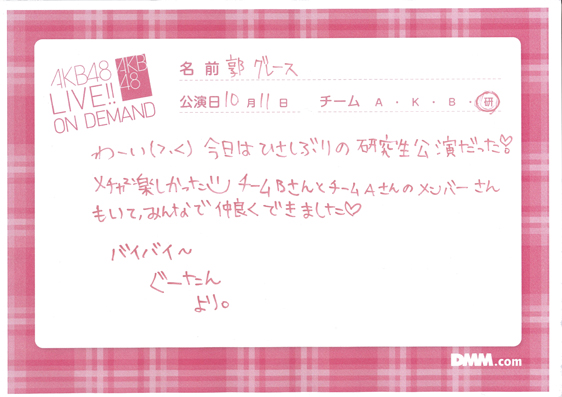 AKB48
LIVE!!
ON DEMAND
AKB
48
名前 郭 グレース
公演日 10月11日 チーム A・K・B・研
わーい(>,<) 今日はひさしぶりの研究生公演だった♡
メチャ2楽しかった チームBさんとチームAさんのメンバーさん
もいて、みんなで仲良くできました♡
バイバイ〜
ぐーたん
より。
DMM.com